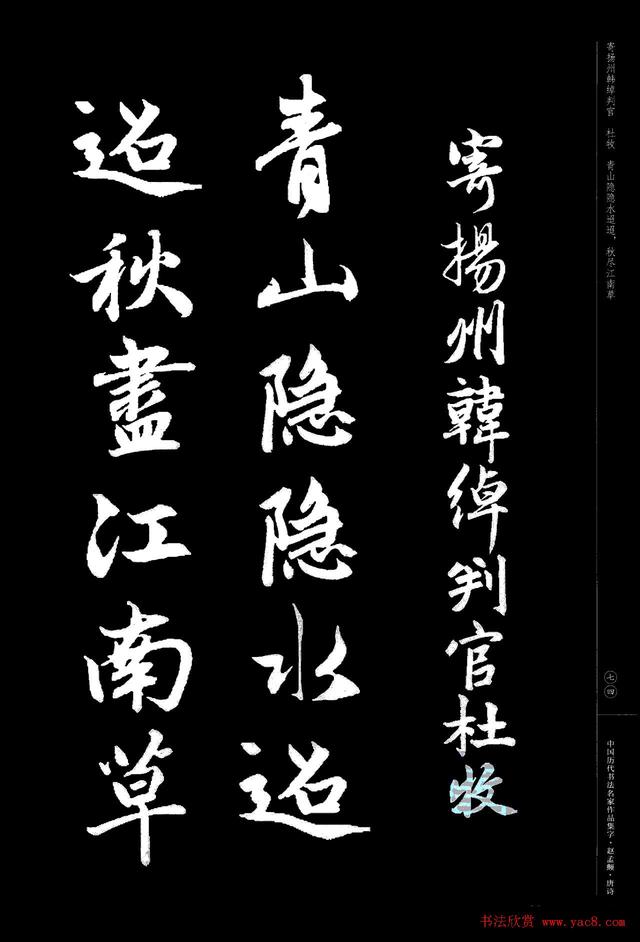 寄扬州韩绰判官 杜牧 青山隐隐水迢迢，秋尽江南草
寄揚州韓綽判官杜牧
青山隐隐水迢
迢秋盡江南草
七四
中国历代书法名家作品集字·赵孟頫·唐诗
书法欣赏 www.yac8.com